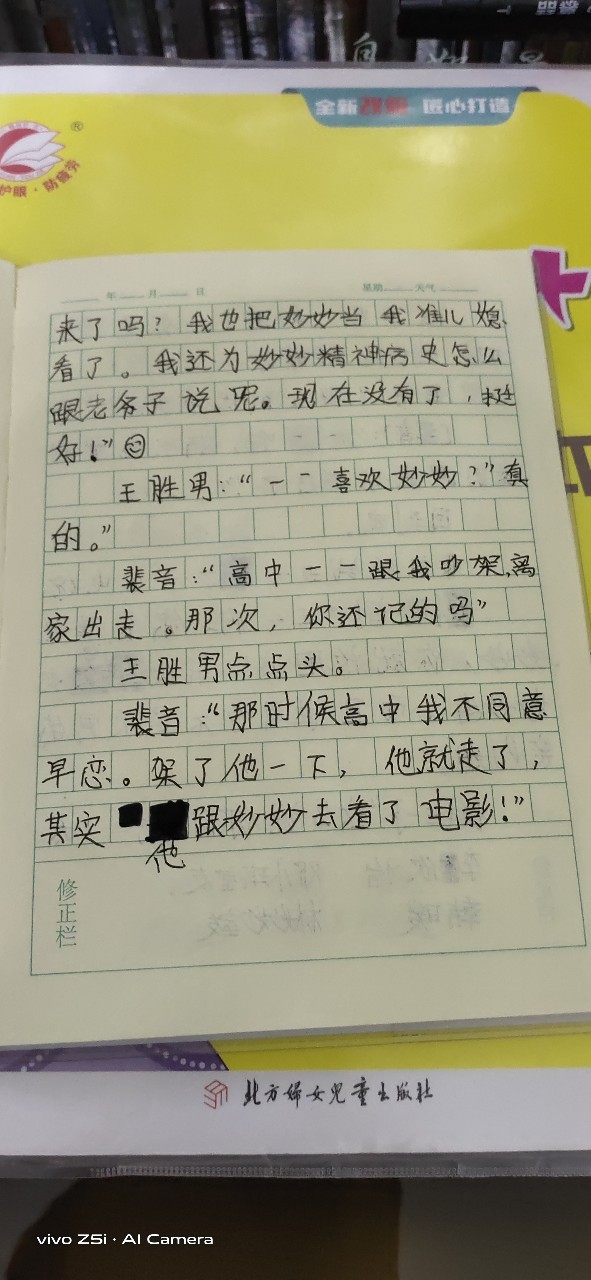 全新改版 匠心打造
护眼·防疲劳
®
年 月 日 星期 天气
来了吗？我也把妙妙当我准儿媳
看了。我还为妙妙精神病史怎么
跟老爷子说呢。现在没有了，挺
好！”☺
王胜男：“一一喜欢妙妙？”真
的。”
裴音：“高中一一跟我吵架，离
家出走。那次，你还记的吗”
王胜男点点头。
裴音：“那时候高中我不同意
早恋。架了他一下，他就走了，
其实 跟妙妙去看了电影！”
他
修正栏
北方妇女儿童出版社
vivo Z5i · AI Camera